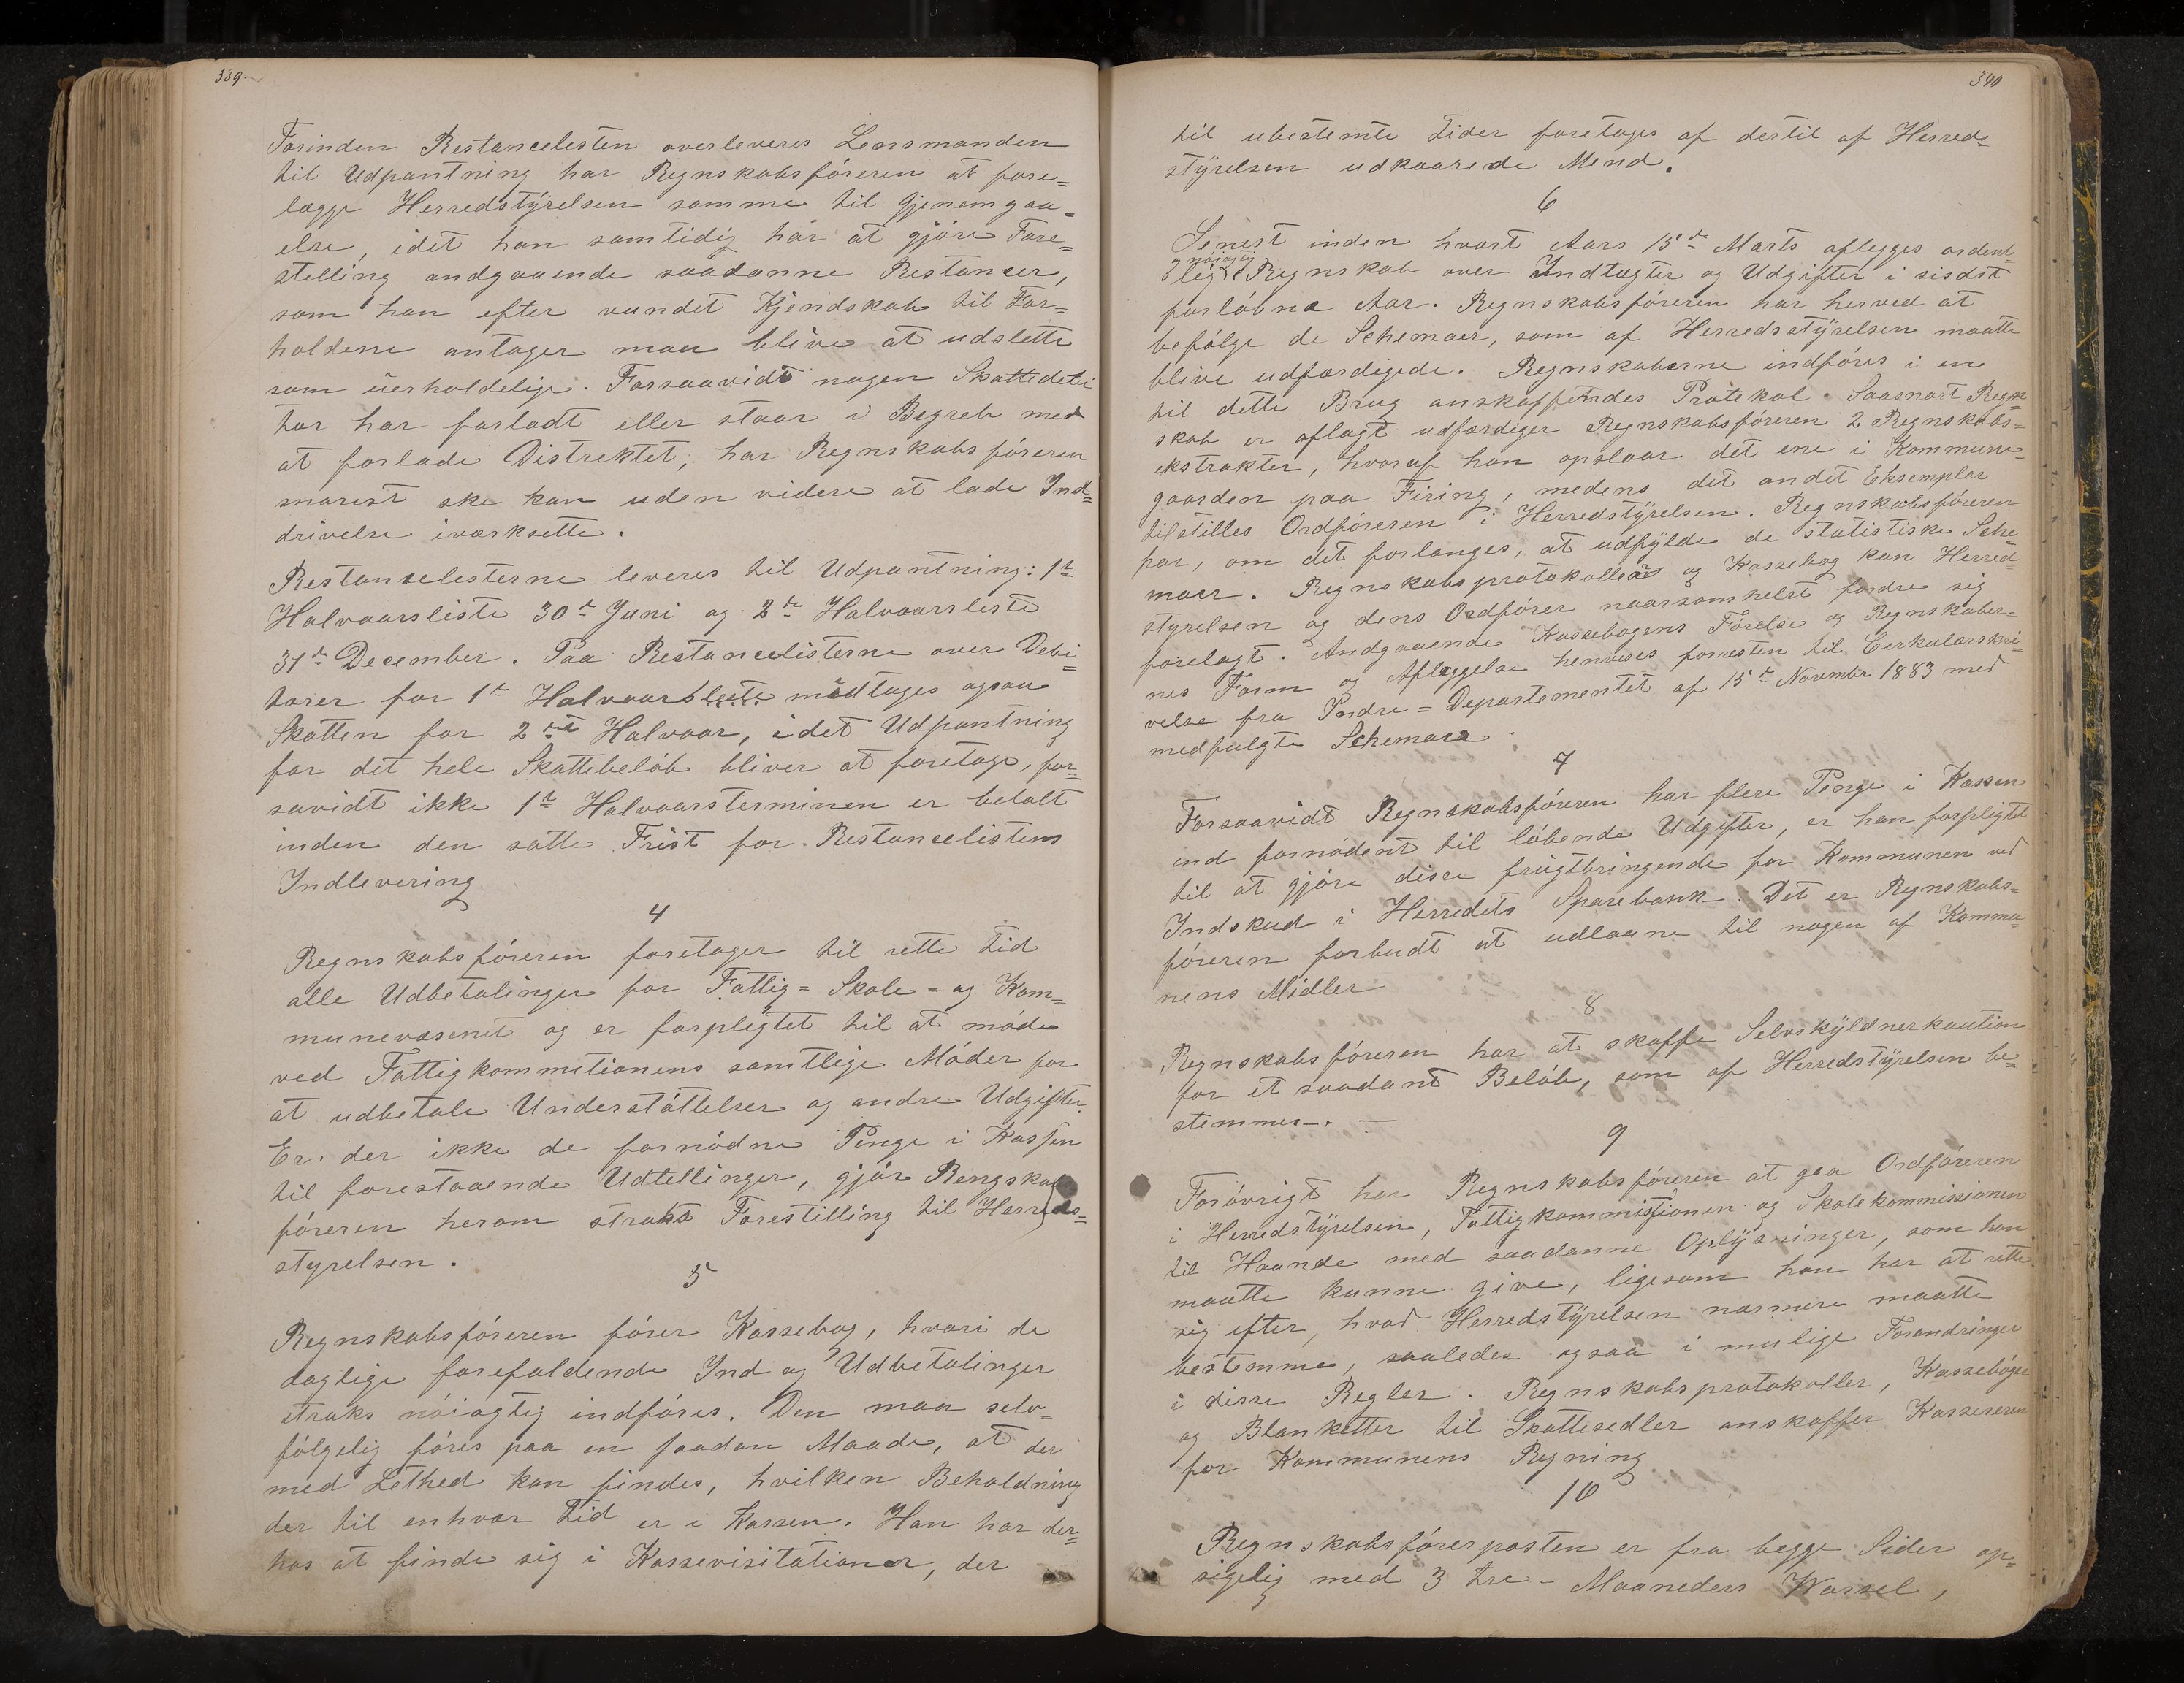 339
Forinden Restancelesten overleveres Lensmanden
til Udpantning har Regnskabsföreren at fore=
lægge Herredstÿrelsen samme til Gjenemgaa=
else, idet han samtidig har at gjöre Fore=
stelling andgaaende saadanne Restanser,
som han efter vundet Kjendskab til For=
holdene antager maa blive at udslette
som uerholdelige. Forsaavidt nogen Skattedebi
tor har forladt eller staar i Begreb med
at forlade Distrektet, har Regnskabsföreren
snarest ske kan uden videre at lade Ind=
drivelse iværksette.
Restanselesterne leveres til Udpantning: 1te
Halvaarsliste 30te Juni og 2de Halvaarsleste
31te December. Paa Restancelisterne over Debi=
torer for 1te Halvaarsleste medtages ogsaa
Skatten for 2det Halvaar, idet Udpantning
for det hele Skattebelöb bliver at foretage, for=
savidt ikke 1te Halvaarsterminen er betalt
inden den satte Frist for Restancelistens
Indlevering
4
Regnskabsföreren foretager til rette Tid
alle Udbetalinger for Fattig= Skole= og Kom=
munevæsenet og er forpligtet til at möde
ved Fattigkommitionens samtlige Möder for
at udbetale Understöttelser og andre Udgifter.
Er der ikke de fornödne Penge i Kassen
til forestaaende Udtellinger, gjör Rengskab
föreren herom straks Forestilling til Herreds=
styrelsen.
5
Regnskabsföreren förer Kassebog, hvori de
daglige forefaldende Ind og Udbetalinger
straks nöiagtig indföres. Den maa selv=
fölgelig föres paa en saadan Maade, at der
med Lethed kan findes, hvilken Beholdning
der til enhvar Tid er i Kassen. Han har der=
hos at finde sig i Kassevisitationer, der
340
til ubestemte Tider foretages af dertil af Herreds=
stÿrelsen udkaarede Mend.
6
Senest inden hvart Aars 15de Marts aflegges ordent=
lig Regnskab over Indtægter og Udgifter i sisdst
forlöbna Aar. Regnskabsföreren har herved at
befölge de Schemaer, som af Herredsstÿrelsen maatte
blive udfærdigede. Regnskaberne indföres i en
til dette Brug anskaffendes Protekol. Saasnart Regn=
skab er aflagt udfærdiger Regnskabsföreren 2 Regnskabs=
ekstrakter, hvoraf han opslaar det ene i Kommune=
gaarden paa Firing, medens det andet Eksemplar
tilstilles Ordföreren i Herredstÿrelsen. Regnskabsföreren
har, om det forlanges, at udfÿlde de statistiske Sche=
maer. Regnskabsprotokollen og Kassebog kan Herred
styrelsen og dens Ordförer naarsomhelst fordre sig
forelagt. Andgaaende Kassebogens Förelse og Regnskaber=
nes Form og Afleggelse henvises forresten til Cerkulærskri=
velse fra Indre=Departementet af 15de Novembr 1883 med
medfulgte Schemaer
7
Forsaavidt Regnskabsföreren har flere Penge i Kassen
end fornödent til löbende Udgifter, er han forpligtet
til at gjöre disse frugtbringende for Kommunen ved
Indskud i Herredets Sparebank. Det er Regnskabs=
föreren forbudt at udlaane til nogen af Kommu
nens Midler
8
Regnskabsföreren har at skaffe Selvskÿldnerkaution
for et saadant Belöb, som af Herredstÿrelsen be=
stemmes. —
9
Forövrigt har Regnskabsföreren at gaa Ordföreren
i Herredstÿrelsen, Fattigkommissionen og Skolekommissionen
til Haande med saadanne Oplÿsninger, som han
maatte kunne give, ligesom han har at rette
sig efter, hvad Herredstÿrelsen nærmere maatte
bestemme, saaledes ogsaa i mulige Forandringer
i disse Regler. Regnskabsprotokoller, Kassebøger
og Blanketter til Skattesedler anskaffer Kassereren
for Kommunens Regning
10
Regnskabsförerposten er fra begge Sider op=
sigelig med 3 tre - Maaneders Varsel,